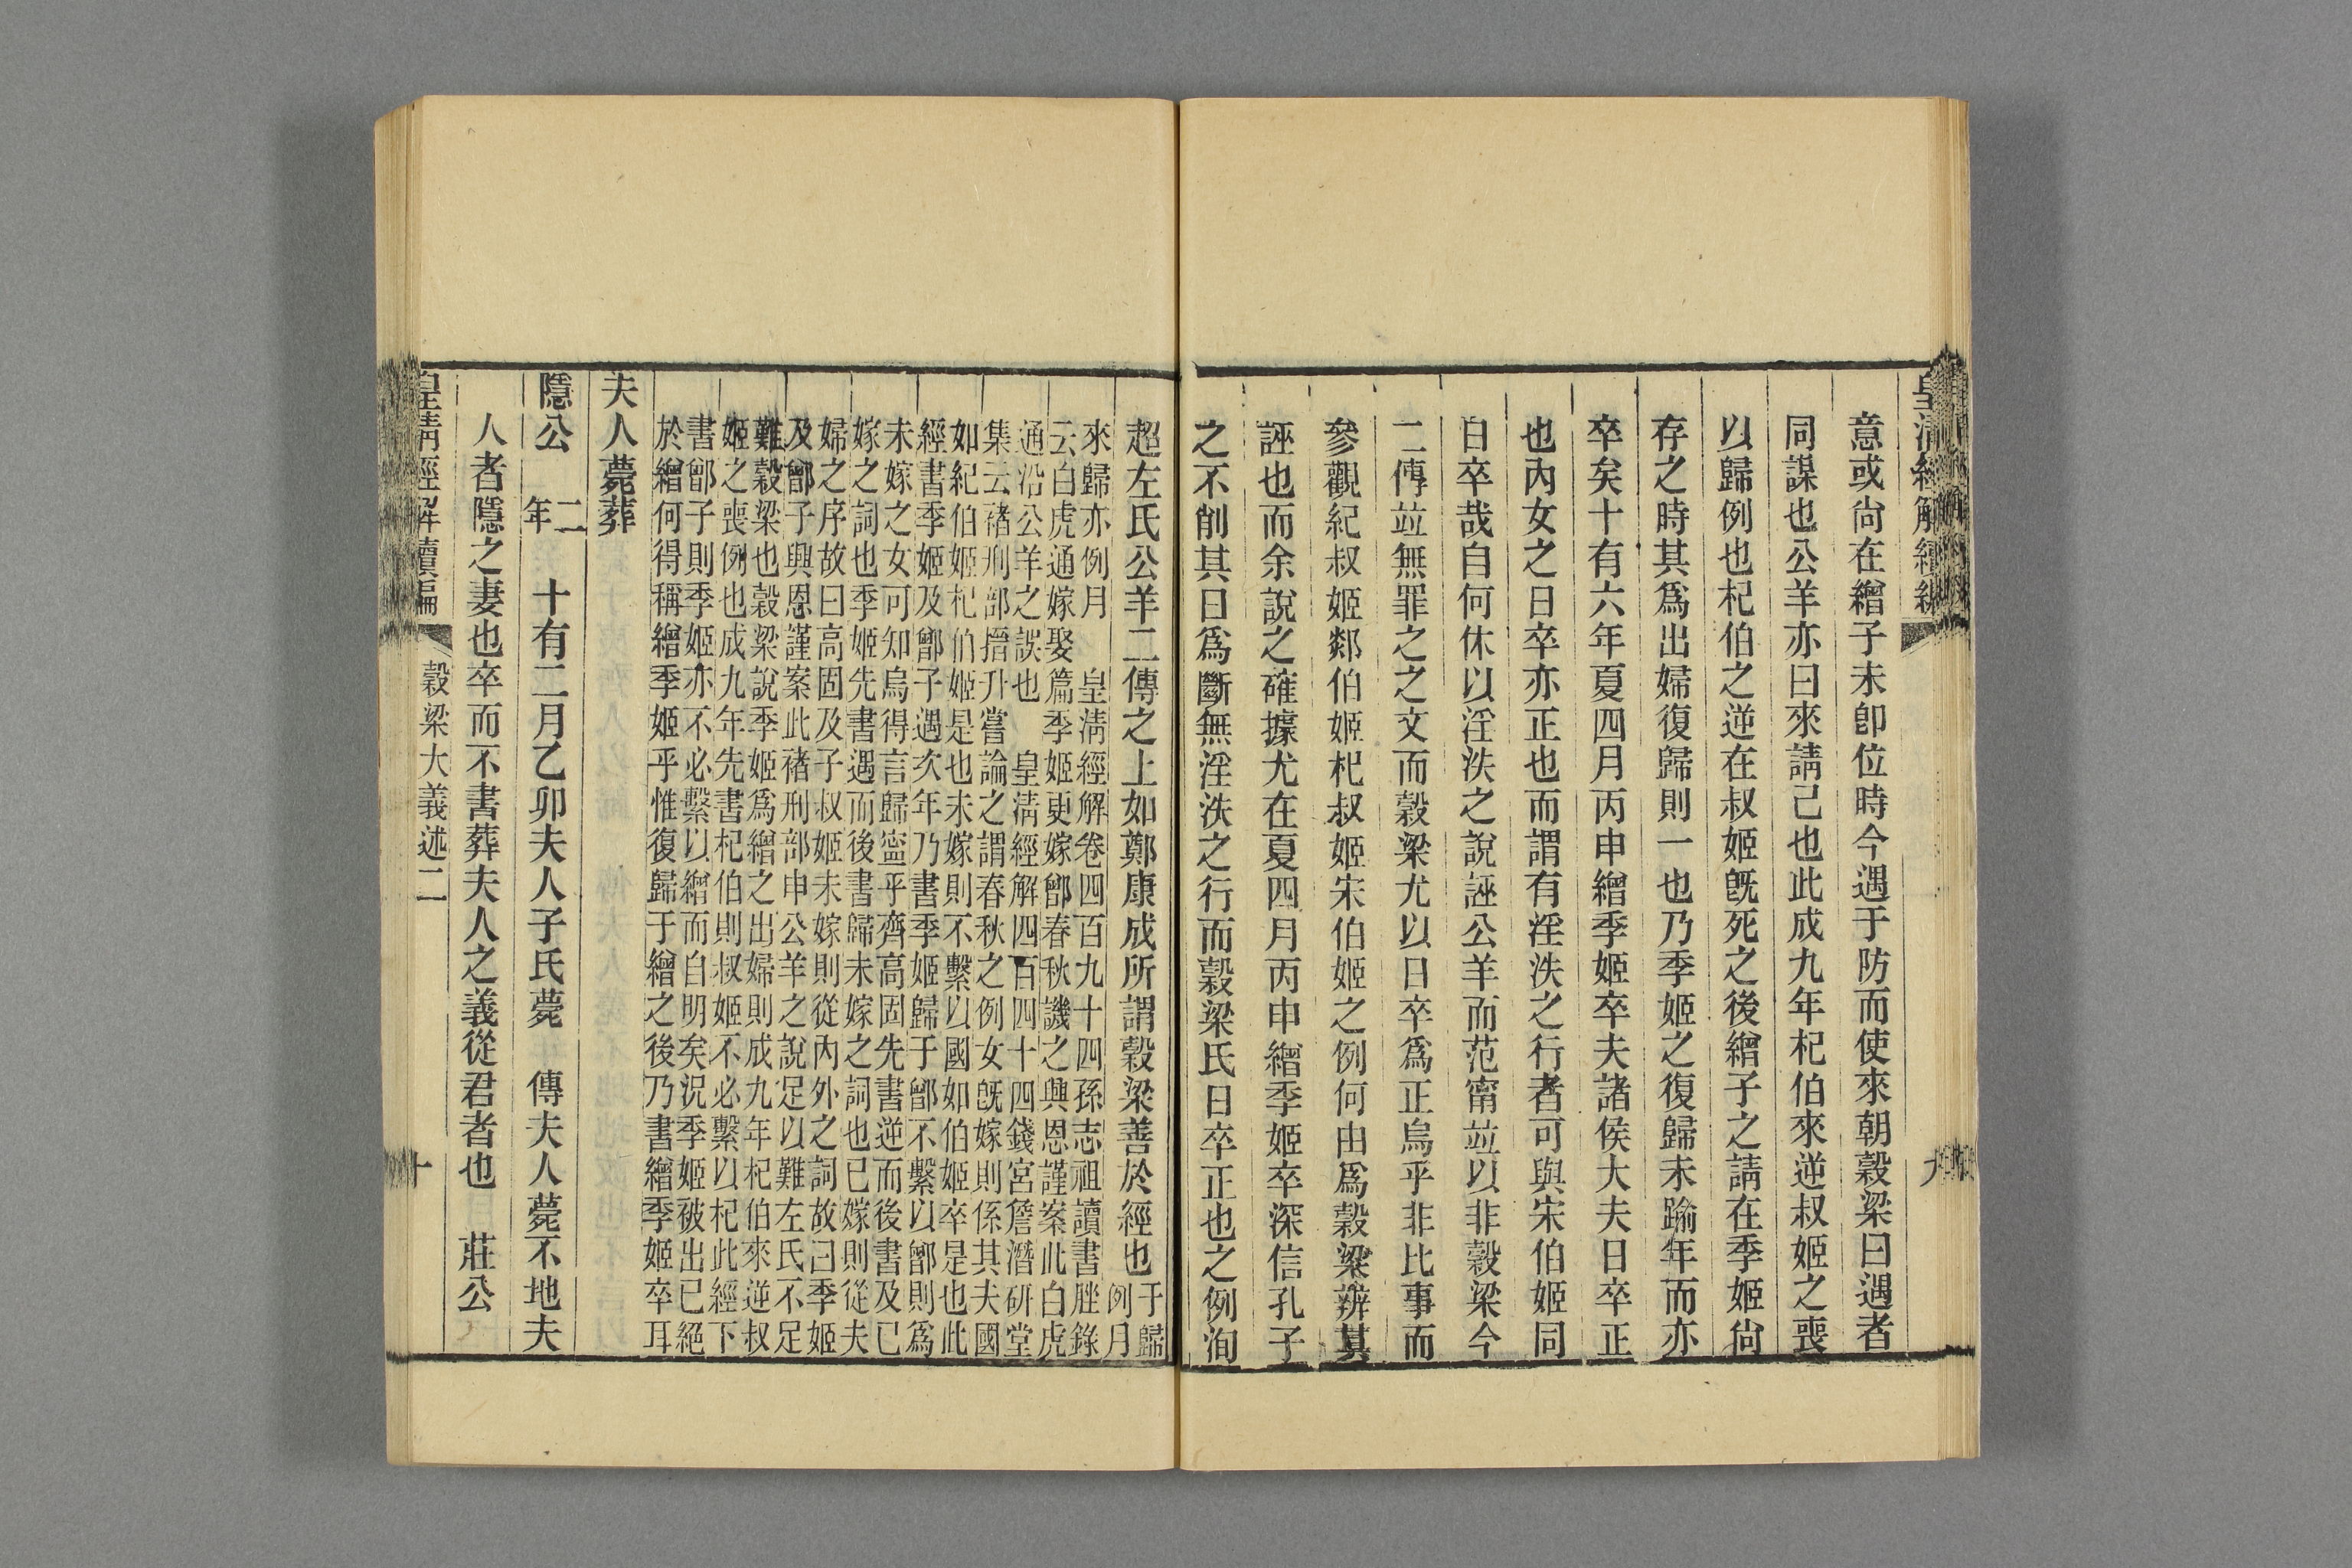 皇清經解續編
九
意或尙在繒子未卽位時今遇于防而使來朝穀梁曰遇者
同謀也公羊亦曰來請己也此成九年杞伯來逆叔姬之喪
以歸例也杞伯之逆在叔姬旣死之後繒子之請在季姬尙
存之時其爲出婦復歸則一也乃季姬之復歸未踰年而亦
卒矣十有六年夏四月丙申繒季姬卒夫諸侯大夫日卒正
也內女之日卒亦正也而謂有淫泆之行者可與宋伯姬同
日卒哉自何休以淫泆之說誣公羊而范甯竝以非穀梁今
二傳竝無罪之之文而穀梁尤以日卒爲正烏乎非比事而
參觀紀叔姬鄰伯姬杞叔姬宋伯姬之例何由爲穀梁辨其
誣也而余說之確據尤在夏四月丙申繒季姬卒深信孔子
之不削其日爲斷無淫泆之行而穀梁氏日卒正也之例洵
超左氏公羊二傳之上如鄭康成所謂穀梁善於經也于歸例月
來歸亦例月　皇淸經解卷四百九十四孫志祖讀書脞錄
云白虎通嫁娶篇季姬更嫁鄫春秋譏之與恩謹案此白虎
通沿公羊之誤也　皇淸經解四百四十四錢宮詹潛研堂
集云褚刑部搢升嘗論之謂春秋之例女旣嫁則係其夫國
如紀伯姬杞伯姬是也未嫁則不繫以國如伯姬卒是也此
經書季姬及鄫子遇次年乃書季姬歸于鄫不繫以鄫則爲
未嫁之女可知烏得言歸寍乎齊高固先書逆而後書及已
嫁之詞也季姬先書遇而後書歸未嫁之詞也已嫁則從夫
婦之序故曰高固及子叔姬未嫁則從內外之詞故曰季姬
及鄫子與恩謹案此褚刑部申公羊之說足以難左氏不足
難穀梁也穀梁說季姬爲繒之出婦則成九年杞伯來逆叔
姬之喪例也成九年先書杞伯則叔姬不必繫以杞此經下
書鄫子則季姬亦不必繫以繒而自明矣況季姬被出已絕
於繒何得稱繒季姬乎惟復歸于繒之後乃書繒季姬卒耳
夫人薨葬
隱公　二年　十有二月乙卯夫人子氏薨　傳夫人薨不地夫
人者隱之妻也卒而不書葬夫人之義從君者也　莊公
皇淸經解續編　穀梁大義述二　十